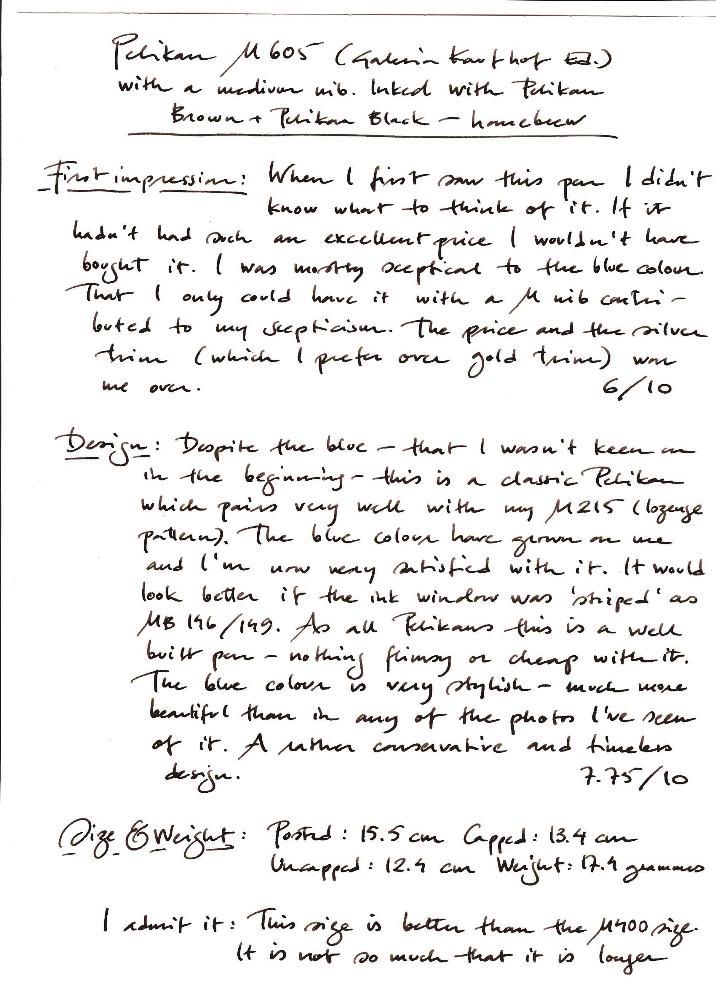 Pelikan M605 (Galeria Kaufhof Ed.)
with a medium nib. Inked with Pelikan
Brown + Pelikan Black - homebrew
First impression: When I first saw this pen I didn't
know what to think of it. If it
hadn't had such an excellent price I wouldn't have
bought it. I was mostly sceptical to the blue colour.
That I only could have it with a M nib contri-
buted to my scepticism. The price and the silver
trim (which I prefer over gold trim) won
me over. 6/10
Design: Despite the blue - that I wasn't keen on
in the beginning - this is a classic Pelikan
which pairs very well with my M215 (lozenge
pattern). The blue colour have grown on me
and I'm now very satisfied with it. It would
look better if the ink window was 'striped' as
MB 146/149. As all Pelikans this is a well
built pen - nothing flimsy or cheap with it.
The blue colour is very stylish - much more
beautiful than in any of the photos I've seen
of it. A rather conservative and timeless
design. 7.75/10
Size & Weight: Posted: 15.5 cm Capped: 13.4 cm
Uncapped: 12.4 cm Weight: 17.4 grammes
I admit it: This size is better than the M400 size.
It is not so much that it is longer